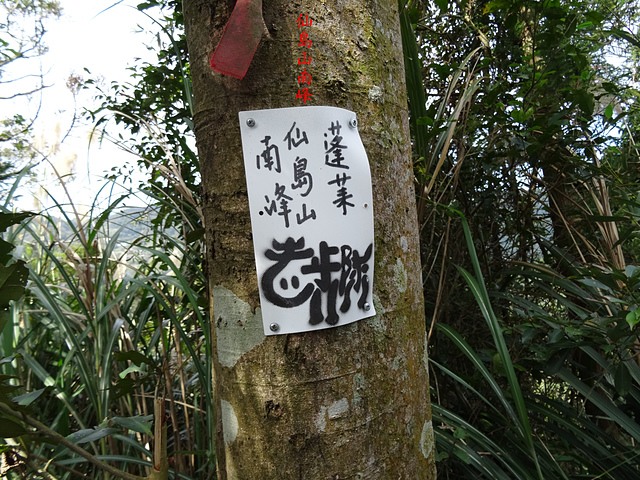 仙島山南峰
蓬萊
仙島山
南峰